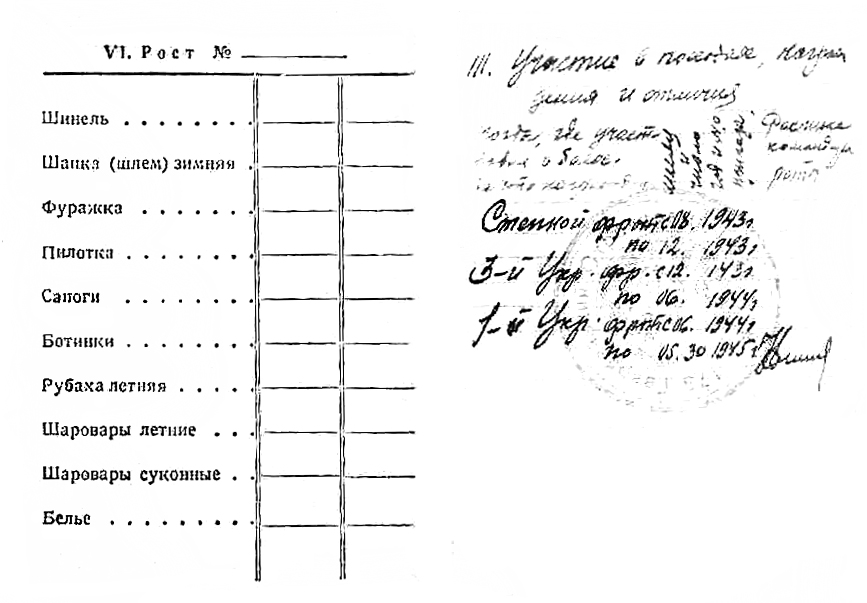 VI. Рост № 
Шинель . . . . . . . .
Шапка (шлем) зимняя .
Фуражка . . . . . . .
Пилотка . . . . . . . .
Сапоги . . . . . . .
Ботинки . . . . . . . .
Рубаха летняя . . . . .
Шаровары летние . . .
Шаровары суконные . .
Белье . . . . . . . . .
III. Участие в походах, награж
дения и отличия
когда, где участ-
число
и
Росписка
командира
роты
Степной фронт с 08. 1943г
по 12. 1943г
3-й Укр. фр. с 12. 143г
по 06. 1944г
1-й Укр. фронт с 06. 1944г
по 05.30 1945г